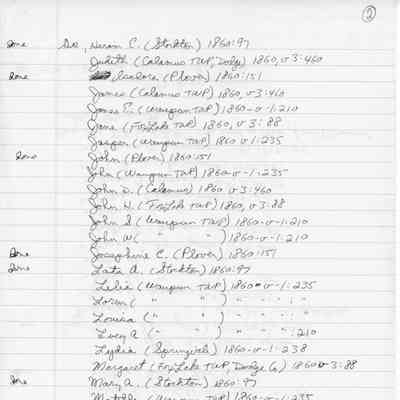 2
Done Hiram C. (Stockton) 1860:97
Judith (Calamus TWP, Dodge) 1860, v3:460
Done Isadora (Plover) 1860:151
James (Calamus TWP) 1860, v3:460
James E. (Waupun TWP) 1860-v-1:210
Jane (Fox Lake TWP) 1860, v3:88
Jasper (Waupun TWP) 1860 v1:235
Done John (Plover) 1860:151
John (Waupun TWP) 1860-v-1:235
John D. (Calamus) 1860 v3:460
John H. (Fox Lake TWP) 1860, v3:88
John S (Waupun TWP) 1860-v-1:210
John W ( " " ) 1860-v-1:210
Done Josephine C. (Plover) 1860:151
Done A. (Stockton) 1860:97
Lelia (Waupun TWP) 1860-v-1:235
Loren ( " " ) " " " : "
Louisa ( " " ) " " " : "
Lucy A ( " " ) " " " :210
Lydia (Springvale) 1860-v-1:238
Margaret (Fox Lake TWP, Dodge Co) 1860 v3:88
Done Mary A. (Stockton) 1860:97
(Waupun TWP) 1860-v-1:235